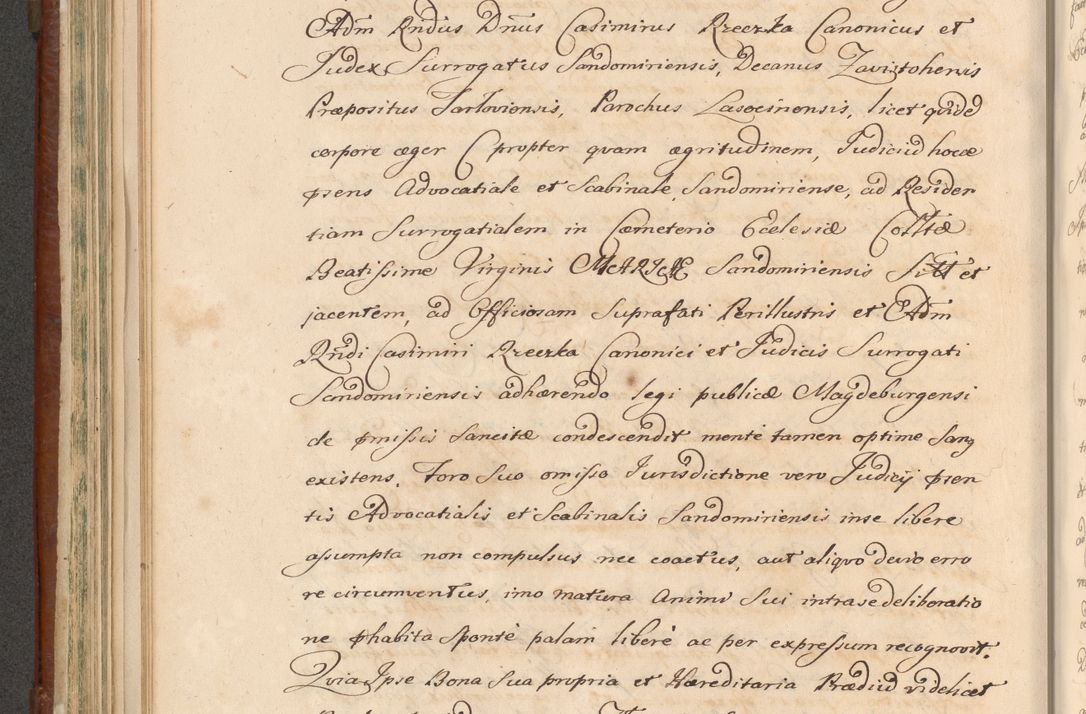 Adm Rndus Dnus Casimirus Rzeczka Canonicus et
Judex Surrogatus Sandomiriensis, Decanus Zavistohensis
Præpositus Tarloviensis, Parochus Lasocinensis, licet quidē
corpore æger C propter quam ægritudinem, Judiciū hocce
psens Advocatiale et Scabinale Sandomiriense, ad Residen
tiam Surrogatialem in Cæmeterio Ecclesiæ Colltæ
Beatissimæ Virginis MARIÆ Sandomiriensis Sitt et
jacentem, ad Officiosam Suprafati Perillustris et Adm
Rndi Casimiri Rzeczka Canonici et Judicis Surrogati
Sandomiriensis adhærendo legi publicæ Maydeburgensi
de pmissis Sancitæ condescendit mente tamen optime Sanq
existens, Foro Suo omisso Jurisdictione vero Judicÿ psen
tis Advocatialis et Scabinalis Sandomiriensis in se libere
assumpta non compulsus nec coactus, aut aliqvo devio erro
re circumventus, imo matura Animi Sui intra se deliberatio
ne phabita Sponte palam libere ac per expressum recognovit.
Qvia Ipse Bona Sua propria et Hæreditaria Prædiū videlicet